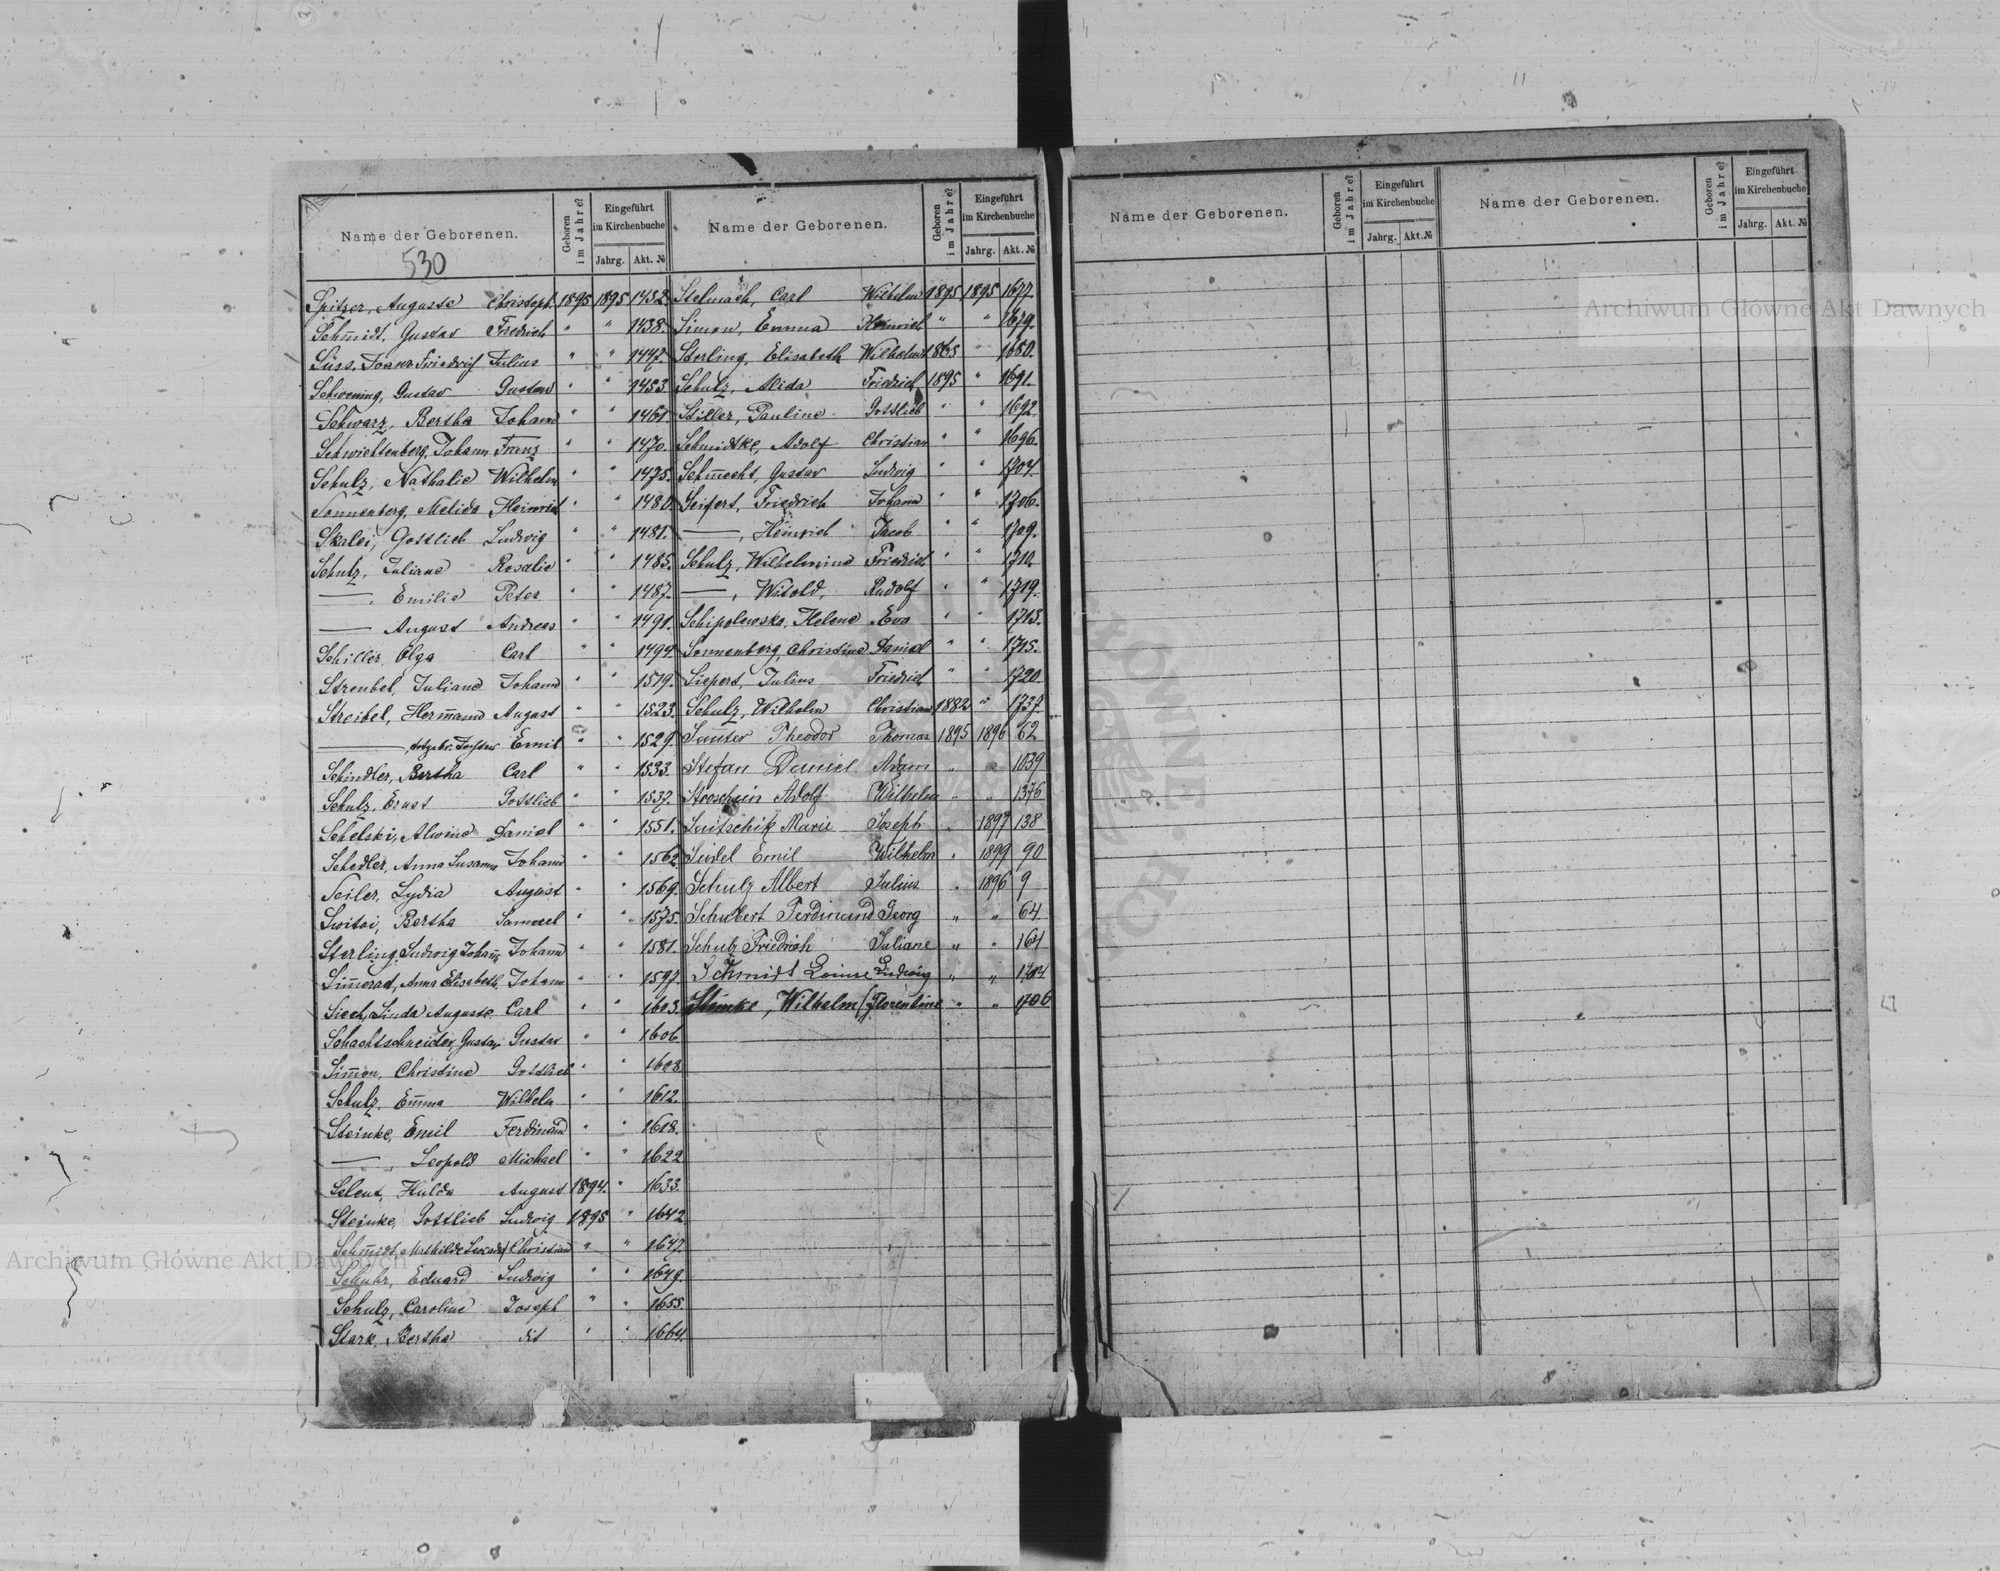 Name der Geborenen.
Geboren im Jahre?
Eingeführt im Kirchenbuche
Jahrg.
Akt. №
530
Spitzer, Auguste Christoph 1895 1895 1432
Schmidt, Gustav Friedrich " " 1438.
Süss, Joann Friedrich Julius " " 1447.
Schoening, Gustav Gustav " " 1453
Schwarz, Bertha Johann " " 1461.
Schwichtenberg, Johann Franz " " 1470.
Schulz, Nathalie Wilhelm " " 1475.
Sonnenberg, Melida Heinrich " " 1480.
Skalei, Gottlieb Ludwig " " 1481.
Schulz, Juliane Rosalie " " 1485.
—, Emilie Peter " " 1487.
— August Andreas " " 1491.
Schiller, Olga Carl " " 1494.
Strenbel, Juliane Johann " " 1519.
Streibel, Hermann August " " 1523.
— Emil " " 1529.
Schindler, Bertha Carl " " 1533.
Schulz, Ernst Gottlieb " " 1537.
Schelski, Alwine Daniel " " 1551.
Schedler, Anna Susanna Johann " " 1562
Seiler, Lydia August " " 1569.
Switai, Bertha Samuel " " 1575.
Sterling, Ludwig Johann Johann " " 1581.
Anna Elisabeth Johann " " 1597.
Siech, Linda Auguste Carl " " 1603.
Schachtschneider, Gustav Gustav " " 1606
Simon, Christine Gottlieb " " 1608
Schulz, Emma Wilhelm " " 1612.
Steinke, Emil Ferdinand " " 1618.
—, Leopold Michael " " 1622
Selent, Hulda August 1894. " 1633.
Steinke, Gottlieb Ludwig 1895 " 1642
Schmidt, Mathilde Christian " " 1647.
Schuhr, Eduard Ludwig " " 1649.
Schulz, Caroline Joseph " " 1655.
Stark, Bertha dit " " 1664.
Name der Geborenen.
Geboren im Jahre?
Eingeführt im Kirchenbuche
Jahrg.
Akt. №
Stelmach, Carl Wilhelm 1895 1895 1677.
Simon, Emma Heinrich " " 1679.
Sterling, Elisabeth Wilhelm 1865 " 1680.
Schulz, Alida Friedrich 1895 " 1691.
Stiller, Pauline Gottlieb " " 1692
Schmidtke, Adolf Christian " " 1696.
Schmecht, Gustav Ludwig " " 1704.
Seifert, Friedrich Johann " " 1706.
—, Heinrich Jacob " " 1709.
Schulz, Wilhelmine Friedrich " " 1710.
—, Witold, Rudolf " " 1719.
Schipolewska, Helene Eva " " 1713.
Sonnenberg, Christine Daniel " " 1715.
Siepert, Julius Friedrich " " 1720.
Schulz, Wilhelm Christian 1882 " 1737.
Sauter Theodor Thomas 1895 1896 62
Stefan Daniel Adam " " 1039
Stroschein Adolf Wilhelm " " 1376
Saitschik Marie Joseph " 1897 138
Seidel Emil Wilhelm " 1899 90
Schulz Albert Julius " 1896 9
Schubert Ferdinand Georg " " 64
Schulz Friedrich Juliane " " 164
Schmidt Louise Ludwig " "
Steinke, Wilhelm (Florentine " " 1706
Name der Geborenen.
Geboren im Jahre?
Eingeführt im Kirchenbuche
Jahrg.
Akt. №
Name der Geborenen.
Geboren im Jahre?
Eingeführt im Kirchenbuche
Jahrg.
Akt. №
Archiwum Główne Akt Dawnych
Archiwum Główne Akt Dawnych